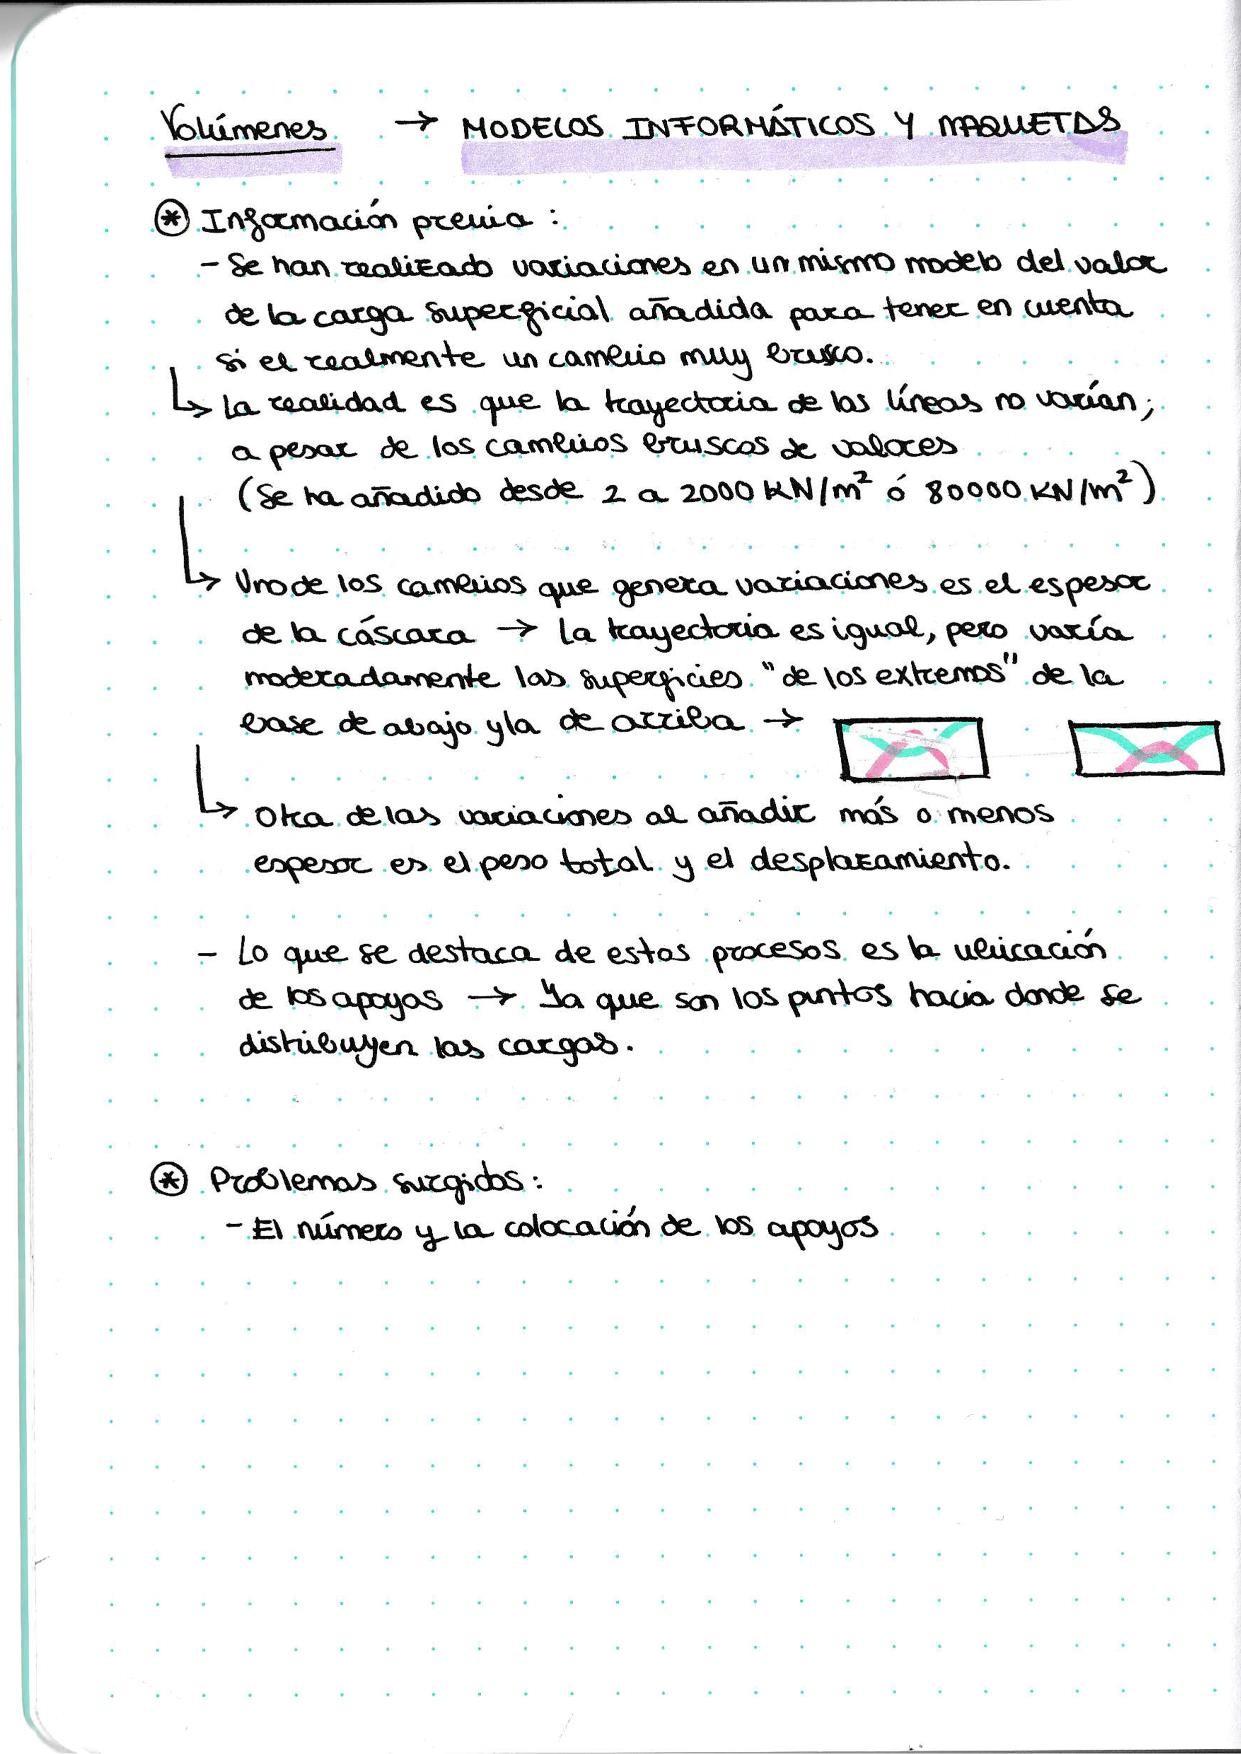 Volúmenes → MODELOS INFORMÁTICOS Y MAQUETAS
* Información previa:
- Se han realizado variaciones en un mismo modelo del valor
de la carga superficial añadida para tener en cuenta
si el realmente un cambio muy brusco.
↳ La realidad es que la trayectoria de las líneas no varían,
a pesar de los cambios bruscos de valores
(Se ha añadido desde 2 a 2000 KN/m² ó 80000 KN/m²)
↳ Uno de los cambios que genera variaciones es el espesor
de la cáscara → La trayectoria es igual, pero varía
moderadamente las superficies "de los extremos" de la
base de abajo y la de arriba →
↳ Otra de las variaciones al añadir más o menos
espesor es el peso total y el desplazamiento.
- Lo que se destaca de estos procesos es la ubicación
de los apoyos → Ya que son los puntos hacia donde se
distribuyen las cargas.
* Problemas surgidos:
- El número y la colocación de los apoyos